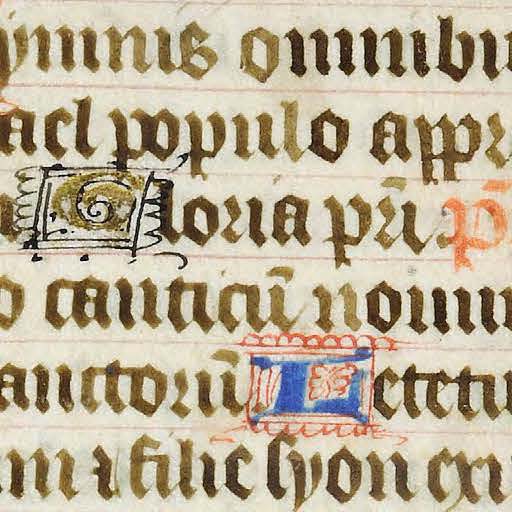 ymnis omnibu
ael populo appr
Gloria pr̄i . p̄
o canticū nouum
anctorū Letetu
m ⁊ filie syon ex